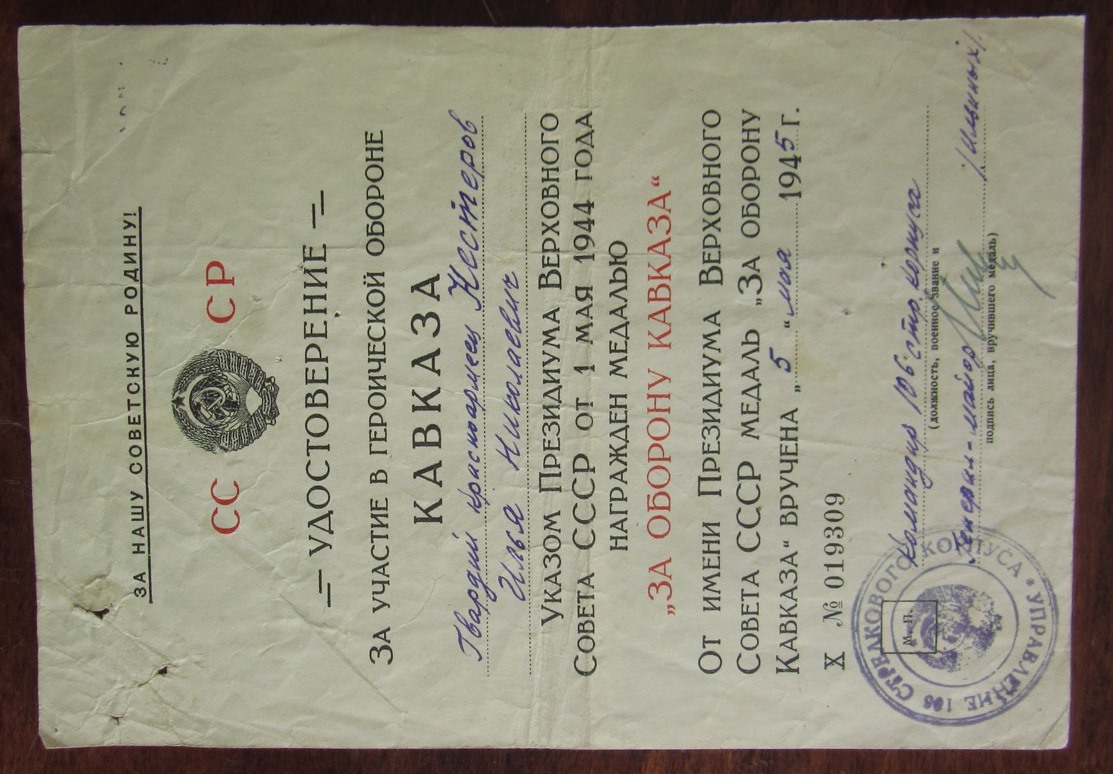 ЗА НАШУ СОВЕТСКУЮ РОДИНУ!
СС СР
УДОСТОВЕРЕНИЕ
ЗА УЧАСТИЕ В ГЕРОИЧЕСКОЙ ОБОРОНЕ
КАВКАЗА
Гвардии красноармеец Нестеров
Илья Николаевич
УКАЗОМ ПРЕЗИДИУМА ВЕРХОВНОГО
СОВЕТА СССР ОТ 1 МАЯ 1944 ГОДА
НАГРАЖДЕН МЕДАЛЬЮ
„ЗА ОБОРОНУ КАВКАЗА“
ОТ ИМЕНИ ПРЕЗИДИУМА ВЕРХОВНОГО
СОВЕТА СССР МЕДАЛЬ „ЗА ОБОРОНУ
КАВКАЗА“ ВРУЧЕНА „5“ мая 1945 г.
Х № 019309
Командир 106 стр. корпуса
(должность, военное звание и
Генерал-майор /Ильиных/
подпись лица, вручившего медаль)
М. П.
УПРАВЛЕНИЕ 106 СТРЕЛКОВОГО КОРПУСА *